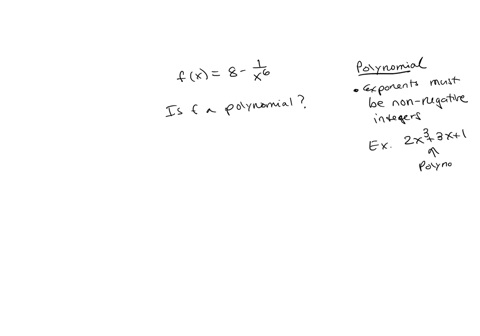 f(x) = 8 - 1/x^6
Is f a polynomial?
Polynomial
• exponents must
be non-negative
integers
Ex. 2x^3+3x+1
⇑
Polyno